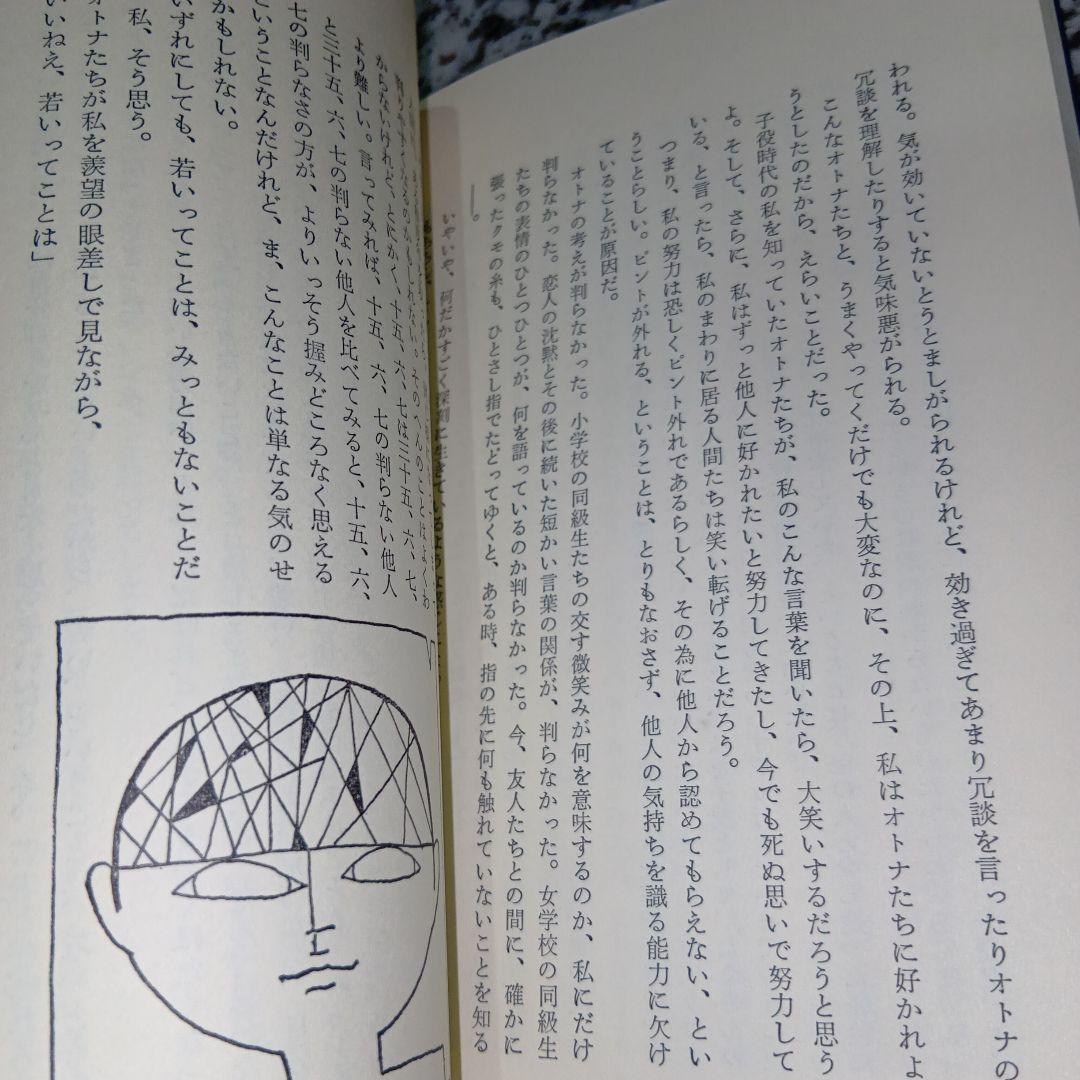 われる。気が効いていないとうとましがられるけれど、効き過ぎてあまり冗談を言ったりオトナの
冗談を理解したりすると気味悪がられる。
こんなオトナたちと、うまくやってくだけでも大変なのに、その上、私はオトナたちに好かれよ
うとしたのだから、えらいことだった。
子役時代の私を知っていたオトナたちが、私のこんな言葉を聞いたら、大笑いするだろうと思う
よ。そして、さらに、私はずっと他人に好かれたいと努力してきたし、今でも死ぬ思いで努力して
いる、と言ったら、私のまわりに居る人間たちは笑い転げることだろう。
つまり、私の努力は恐しくピント外れであるらしく、その為に他人から認めてもらえない、とい
うことらしい。ピントが外れる、ということは、とりもなおさず、他人の気持ちを識る能力に欠け
ていることが原因だ。
オトナの考えが判らなかった。小学校の同級生たちの交す微笑みが何を意味するのか、私にだけ
判らなかった。恋人の沈黙とその後に続いた短かい言葉の関係が、判らなかった。女学校の同級生
たちの表情のひとつひとつが、何を語っているのか判らなかった。今、友人たちとの間に、確かに
張ったクモの糸も、ひとさし指でたどってゆくと、ある時、指の先に何も触れていないことを知る
――。
いやいや、何だかすごく深刻に生きているような
判りやすくなるのかもしれない。そのへんのことはよくわ
からないけれど、とにかく、十五、六、七は三十五、六、七、
より難しい。言ってみれば、十五、六、七の判らない他人
と三十五、六、七の判らない他人を比べてみると、十五、六、
七の判らなさの方が、よりいっそう握みどころなく思える
ということなんだけれど、ま、こんなことは単なる気のせ
かもしれない。
いずれにしても、若いってことは、みっともないことだ
私、そう思う。
オトナたちが私を羨望の眼差しで見ながら、
いいねえ、若いってことは」